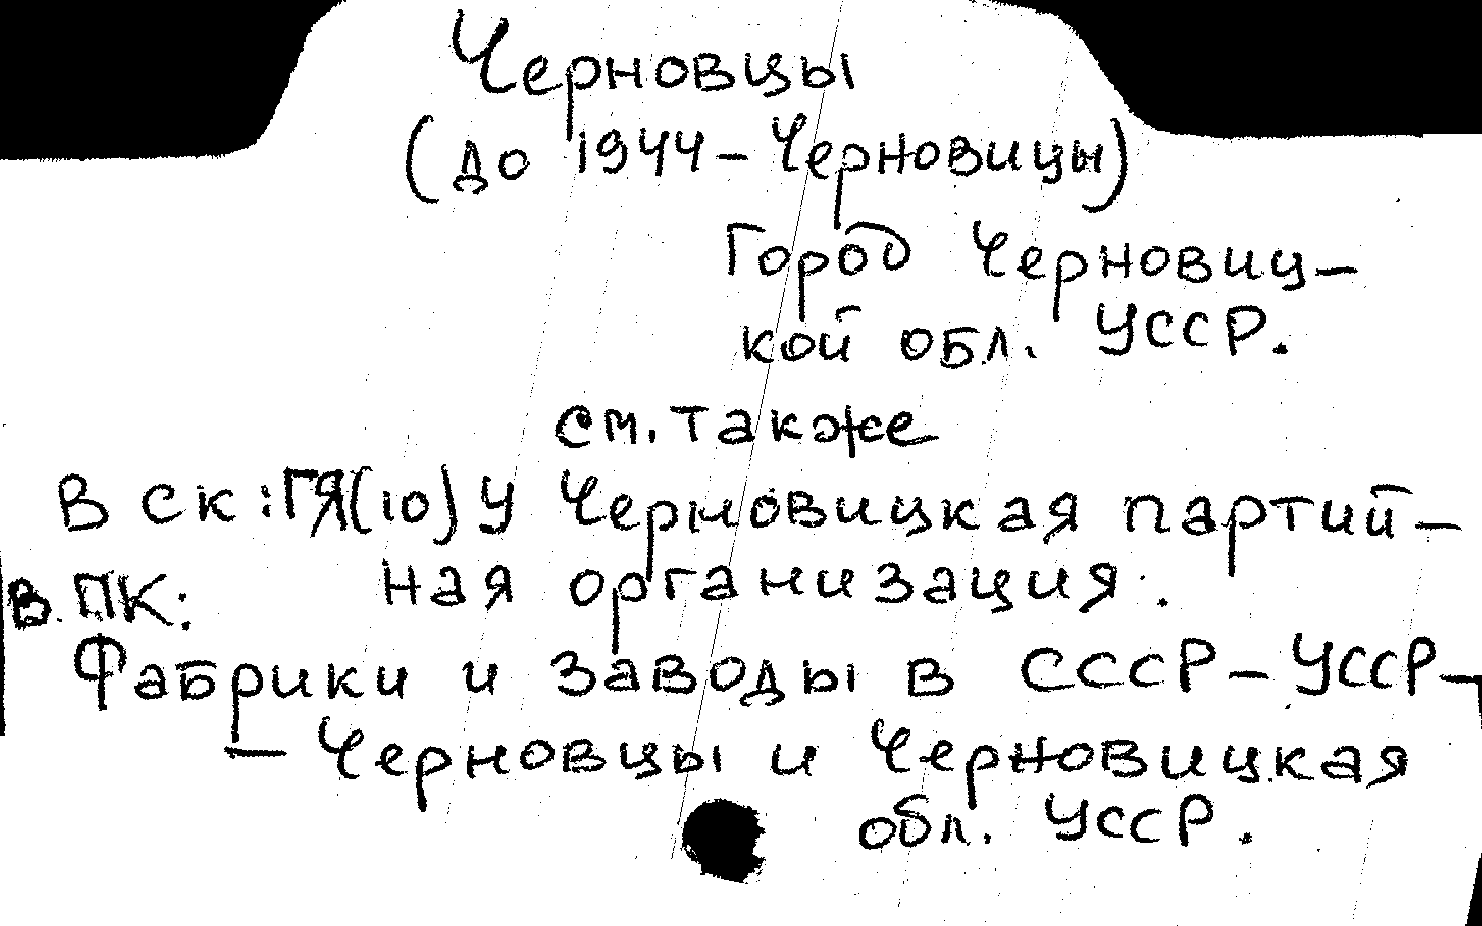 Черновцы
(до 1944 – Черновицы)
Город Черновиц-
кой обл. УССР.
см. также
В СК: ГЯ(10)У Черновицкая партий-
В ПК: ная организация.
Фабрики и заводы в СССР – УССР –
– Черновцы и Черновицкая
обл. УССР.